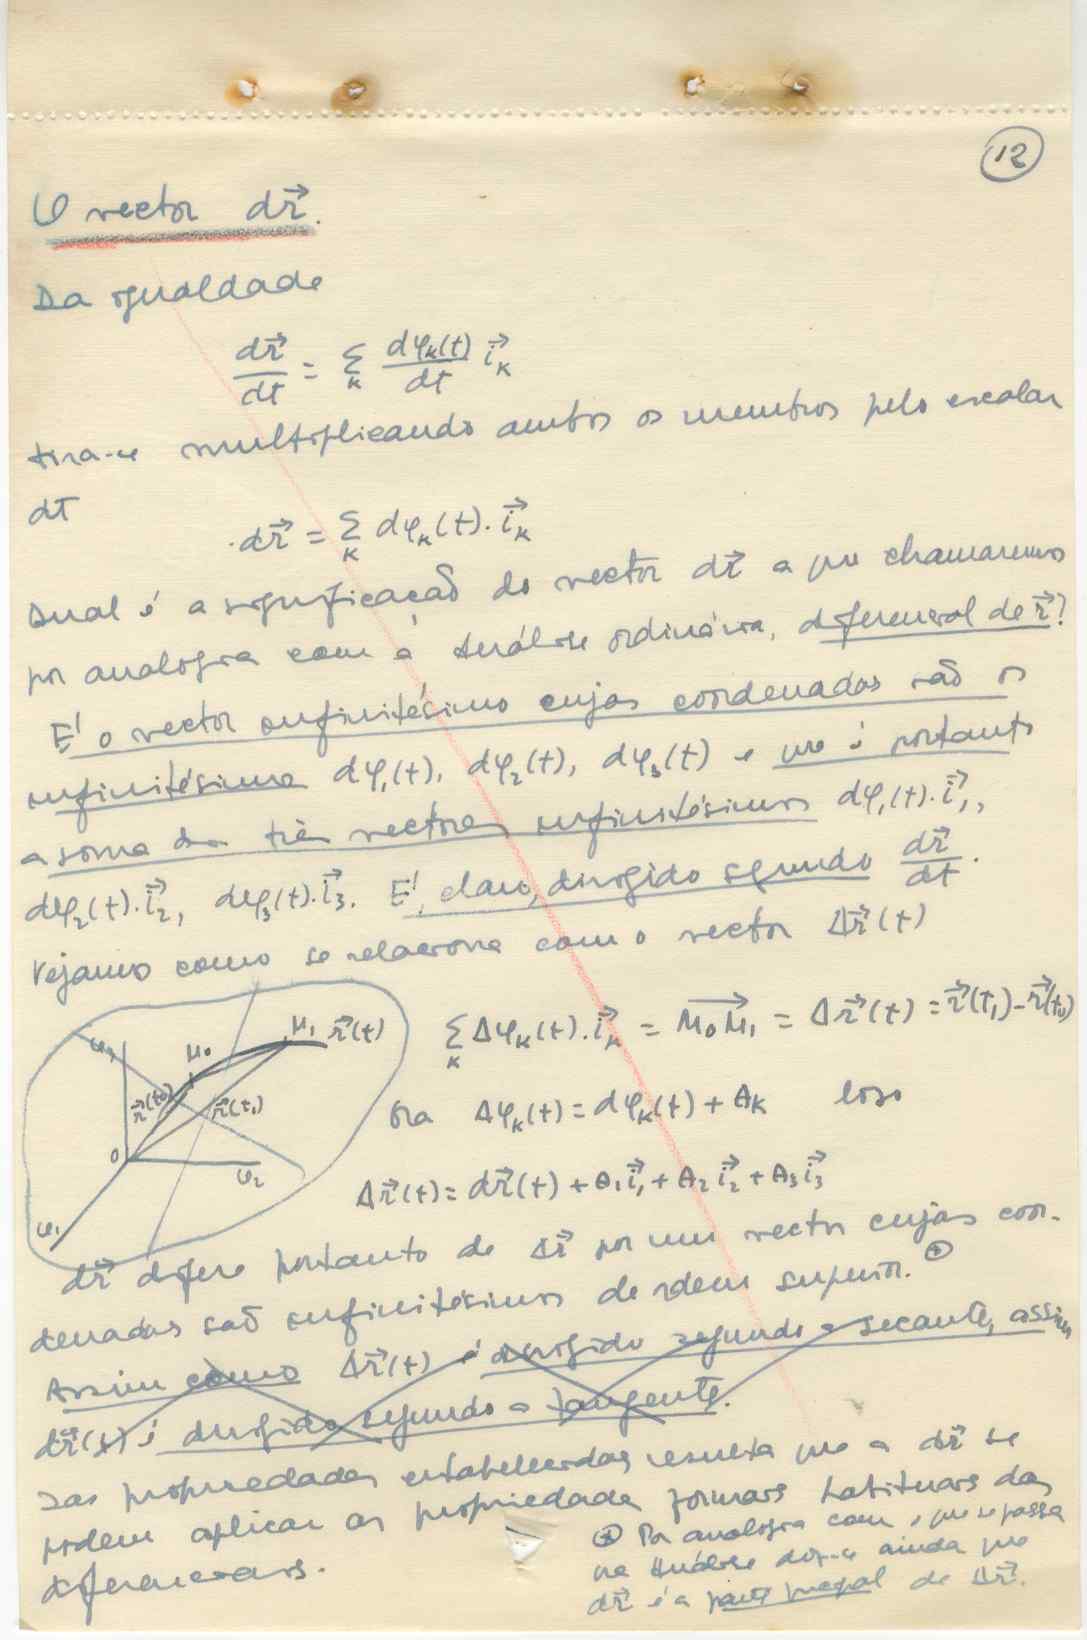 12
O vector d𝑟⃗.
Da igualdade
d𝑟⃗/dt = Σ_k dφ_k(t)/dt i⃗_k
tira-se multiplicando ambos os membros pelo escalar
dt
d𝑟⃗ = Σ_k dφ_k(t). i⃗_k
Qual é a significação do vector d𝑟⃗ a que chamaremos
por analogia com a Análise ordinária, diferencial de 𝑟⃗?
E' o vector infinitésimo cujas coordenadas são os
infinitésimos dφ₁(t), dφ₂(t), dφ₃(t) e que é portanto
a soma dos três vectores infinitésimos dφ₁(t). i⃗₁,
dφ₂(t). i⃗₂, dφ₃(t). i⃗₃. E', claro, dirigido segundo d𝑟⃗/dt.
Vejamos como se relaciona com o vector Δ𝑟⃗(t)
M₀ M₁ 𝑟⃗(t)
𝑟⃗(t₀) 𝑟⃗(t₁)
O
φ₃
φ₂
φ₁
Σ_k Δφ_k(t). i⃗_k = M₀M₁⃗ = Δ𝑟⃗(t) = 𝑟⃗(t₁) - 𝑟⃗(t₀)
Ora Δφ_k(t) = dφ_k(t) + A_k logo
Δ𝑟⃗(t) = d𝑟⃗(t) + A₁i⃗₁ + A₂i⃗₂ + A₃i⃗₃
d𝑟⃗ difere portanto de Δ𝑟⃗ por um vector cujas coor-
denadas são infinitésimos de ordem superior. ⊕
Assim como Δ𝑟⃗(t) é dirigido segundo a secante, assim
d𝑟⃗(t) é dirigido segundo a tangente.
Das propriedades estabelecidas resulta que a d𝑟⃗ se
podem aplicar as propriedades formais habituais das
diferenciais.
⊕ Por analogia com o que se passa
na Análise diz-se ainda que
d𝑟⃗ é a parte principal de Δ𝑟⃗.